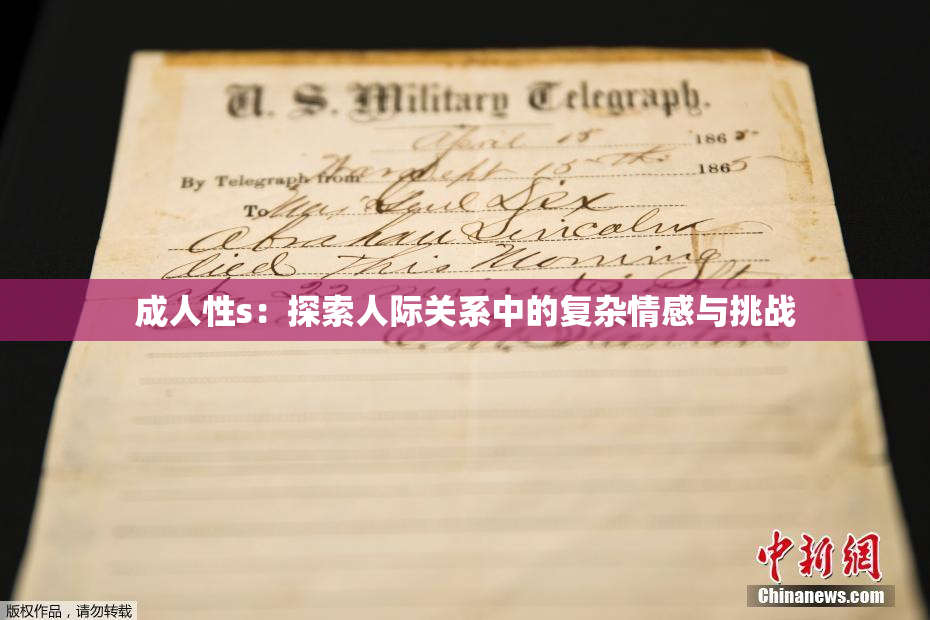 U. S. Military Telegraph.
April 15 1865
By Telegraph from War Dept 15th 1865
To Maj Genl Dix
Abraham Lincoln
died This Morning
at 22 minutes after
成人性s：探索人际关系中的复杂情感与挑战
E. M. Stanton
中新网
Chinanews.com
版权作品，请勿转载